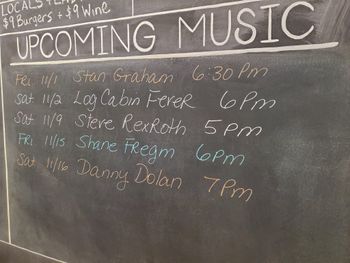 LOCALS
$9 Burgers + $9 Wine
UPCOMING MUSIC
Fri 11/1 Stan Graham 6:30 Pm
Sat 11/2 Log Cabin FeveR 6 Pm
Sat 11/9 Steve RexRoth 5 Pm
FRi 11/15 Shane FRegm 6 Pm
Sat 11/16 Danny Dolan 7 Pm